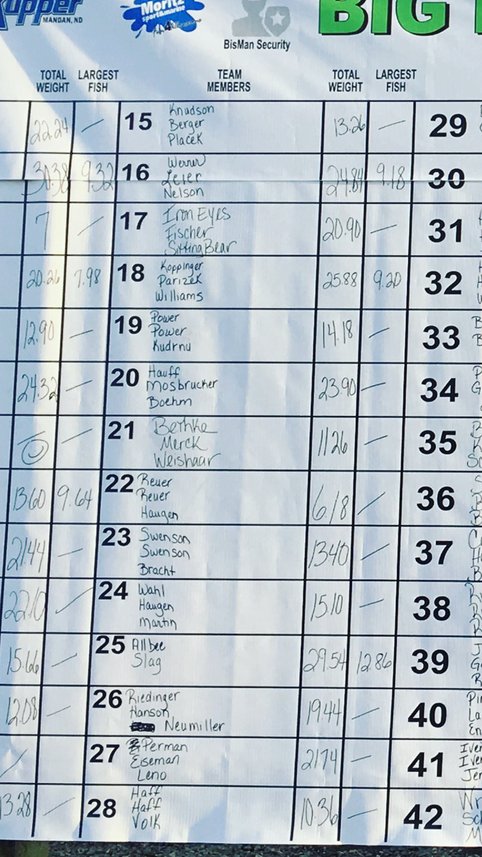 MANDAN, ND
Moritz
sport&marine
BisMan Security
BIG
TOTAL WEIGHT LARGEST FISH TEAM MEMBERS TOTAL WEIGHT LARGEST FISH
22.24 — 15 Knudson 13.26 — 29
Berger
Placek
30.38 9.32 16 Werner 24.84 9.18 30
Leier
Nelson
7 — 17 Iron Eyes 20.90 — 31
Fischer
Sitting Bear
20.26 7.98 18 Koppinger 25.88 9.20 32
Parizek
Williams
12.90 — 19 Power 14.18 — 33
Power
Kudrnu
24.32 — 20 Hauff 23.90 — 34
Mosbrucker
Boehm
— 21 Bethke 11 26 — 35
Merck
Weishaar
13.60 9.64 22 Reuer 6/8 — 36
Reuer
Haugen
21.44 — 23 Swenson 13.40 — 37
Swenson
Bracht
22.10 — 24 Wahl 15.10 — 38
Haugen
Martin
15.66 — 25 Allbee 29.54 12.86 39
Slag
12.08 — 26 Riedinger 19.44 — 40
Hanson
Neumiller
27 Perman 21.74 — 41
Eiseman
Leno
13.28 — 28 Haff 10.36 — 42
Haff
Volk